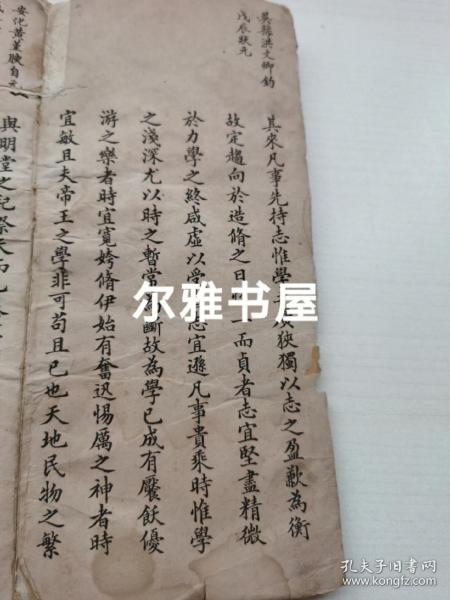 吴县洪文卿钧
戊辰状元
其来凡事先持志惟學 狹獨以志之盈歉為衡
故定趨向於造脩之日 一而貞者志宜堅盡精微
於力學之終咸虛以受 志宜遜凡事貴乘時惟學
之淺深尤以時之暫常 斷故為學已成有饜飫優
游之樂者時宜寬姱脩伊始有奮迅惕厲之神者時
宜敏且夫帝王之學非可苟且已也天地民物之繁
與明堂之紀祭天而
安化黃 自元
尔雅书屋
孔夫子旧书网
www.kongfz.com